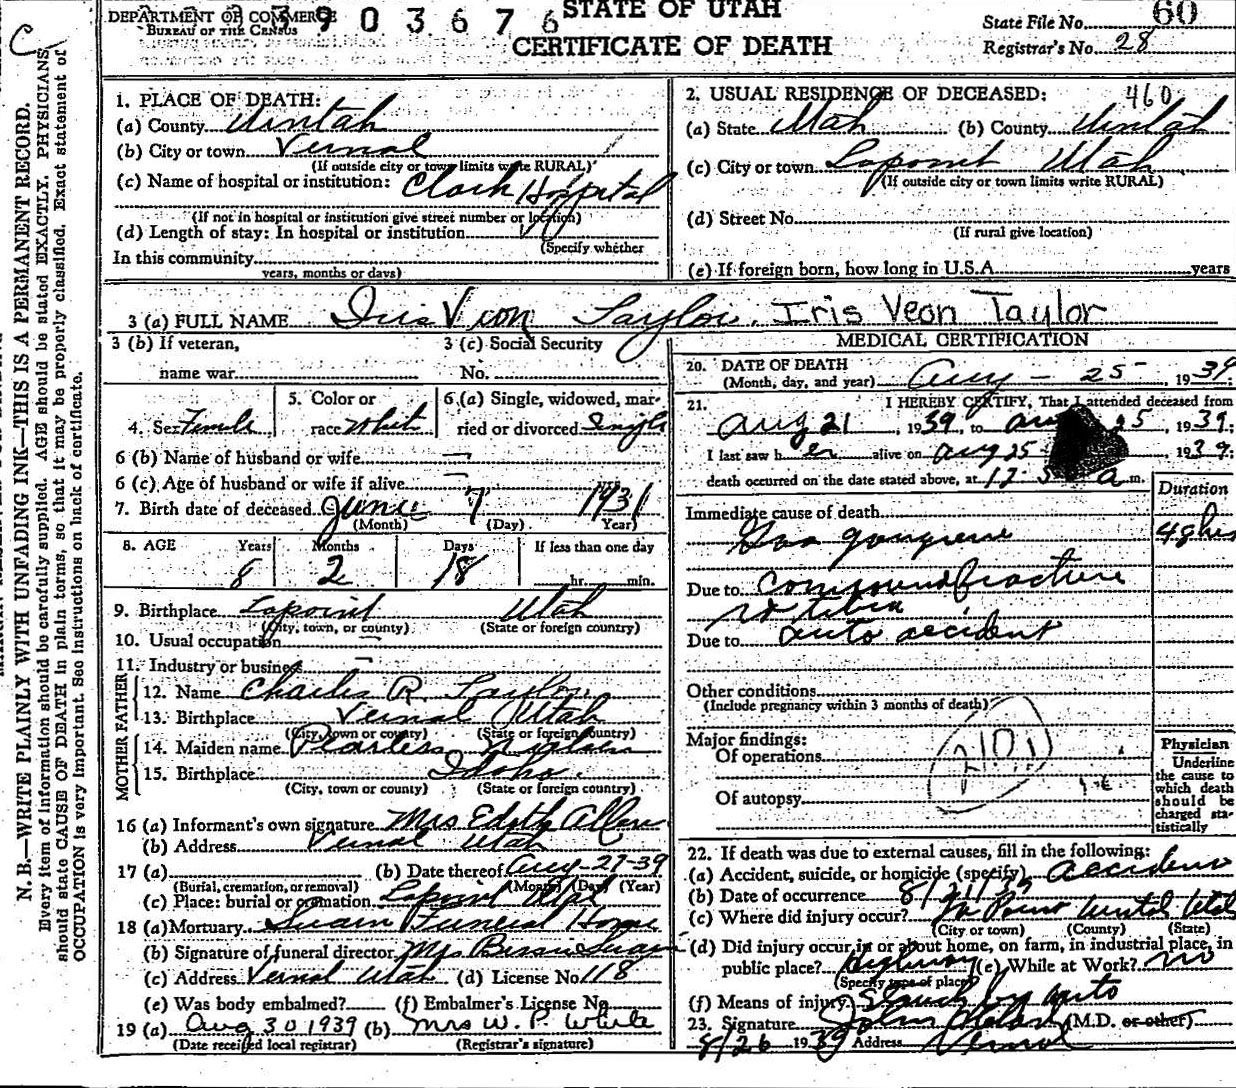 DEPARTMENT OF COMMERCE
BUREAU OF THE CENSUS
3 9 0 3 6 7 6
STATE OF UTAH
CERTIFICATE OF DEATH
State File No. 60
Registrar's No. 28
C
N. B.—WRITE PLAINLY WITH UNFADING INK—THIS IS A PERMANENT RECORD.
Every item of information should be carefully supplied. AGE should be stated EXACTLY. PHYSICIANS
should state CAUSE OF DEATH in plain terms, so that it may be properly classified. Exact statement of
OCCUPATION is very important. See instructions on back of certificate.
1. PLACE OF DEATH:
(a) County Uintah
(b) City or town Vernal
(If outside city or town limits write RURAL)
(c) Name of hospital or institution: Hospital
(If not in hospital or institution give street number or location)
(d) Length of stay: In hospital or institution
(Specify whether
In this community
years, months or days)
2. USUAL RESIDENCE OF DECEASED: 460
(a) State Utah (b) County Uintah
(c) City or town Lapoint Utah
(If outside city or town limits write RURAL)
(d) Street No.
(If rural give location)
(e) If foreign born, how long in U.S.A. years
3 (a) FULL NAME Iris Veon Taylor. Iris Veon Taylor
3 (b) If veteran,
name war
3 (c) Social Security
No.
4. Sex Female
5. Color or
race White
6.(a) Single, widowed, mar-
ried or divorced Single
6 (b) Name of husband or wife —
6 (c) Age of husband or wife if alive —
7. Birth date of deceased June 7 1931
(Month) (Day) (Year)
8. AGE Years Months Days If less than one day
8 2 18 hr. min.
9. Birthplace Lapoint Utah
(City, town, or county) (State or foreign country)
10. Usual occupation —
11. Industry or business —
FATHER
12. Name Charles R. Taylor
13. Birthplace Vernal Utah
(City, town or county) (State or foreign country)
MOTHER
14. Maiden name
15. Birthplace Idaho.
(City, town or county) (State or foreign country)
16 (a) Informant's own signature Mrs Edith Allen
(b) Address Vernal Utah
17 (a) (b) Date thereof Aug-27-39
(Burial, cremation, or removal) (Month) (Day) (Year)
(c) Place: burial or cremation Lapoint Utah
18 (a) Mortuary Swain Funeral Home
(b) Signature of funeral director Mrs Swain
(c) Address Vernal Utah (d) License No. 118
(e) Was body embalmed? (f) Embalmer's License No.
19 (a) Aug 30 1939 (b) Mrs W. P. White
(Date received local registrar) (Registrar's signature)
MEDICAL CERTIFICATION
20. DATE OF DEATH
(Month, day, and year) Aug - 25, 1939
21. I HEREBY CERTIFY, That I attended deceased from
Aug 21, 1939, to 25, 1939;
I last saw her alive on Aug 25 1939;
death occurred on the date stated above, at a m.
Duration
Immediate cause of death
Gas gangrene 48 hrs
Due to Compound fracture
rt tibia
Due to auto accident
Other conditions
(Include pregnancy within 3 months of death)
Major findings:
Of operations
Of autopsy
Physician
Underline
the cause to
which death
should be
charged sta-
tistically
22. If death was due to external causes, fill in the following:
(a) Accident, suicide, or homicide (specify) Accident
(b) Date of occurrence 8/21/39
(c) Where did injury occur? La Point Uintah Utah
(City or town) (County) (State)
(d) Did injury occur in or about home, on farm, in industrial place, in
public place? Highway (e) While at Work? no
(Specify type of place)
(f) Means of injury Struck by auto
23. Signature (M.D. or other)
8/26 1939 Address Vernal